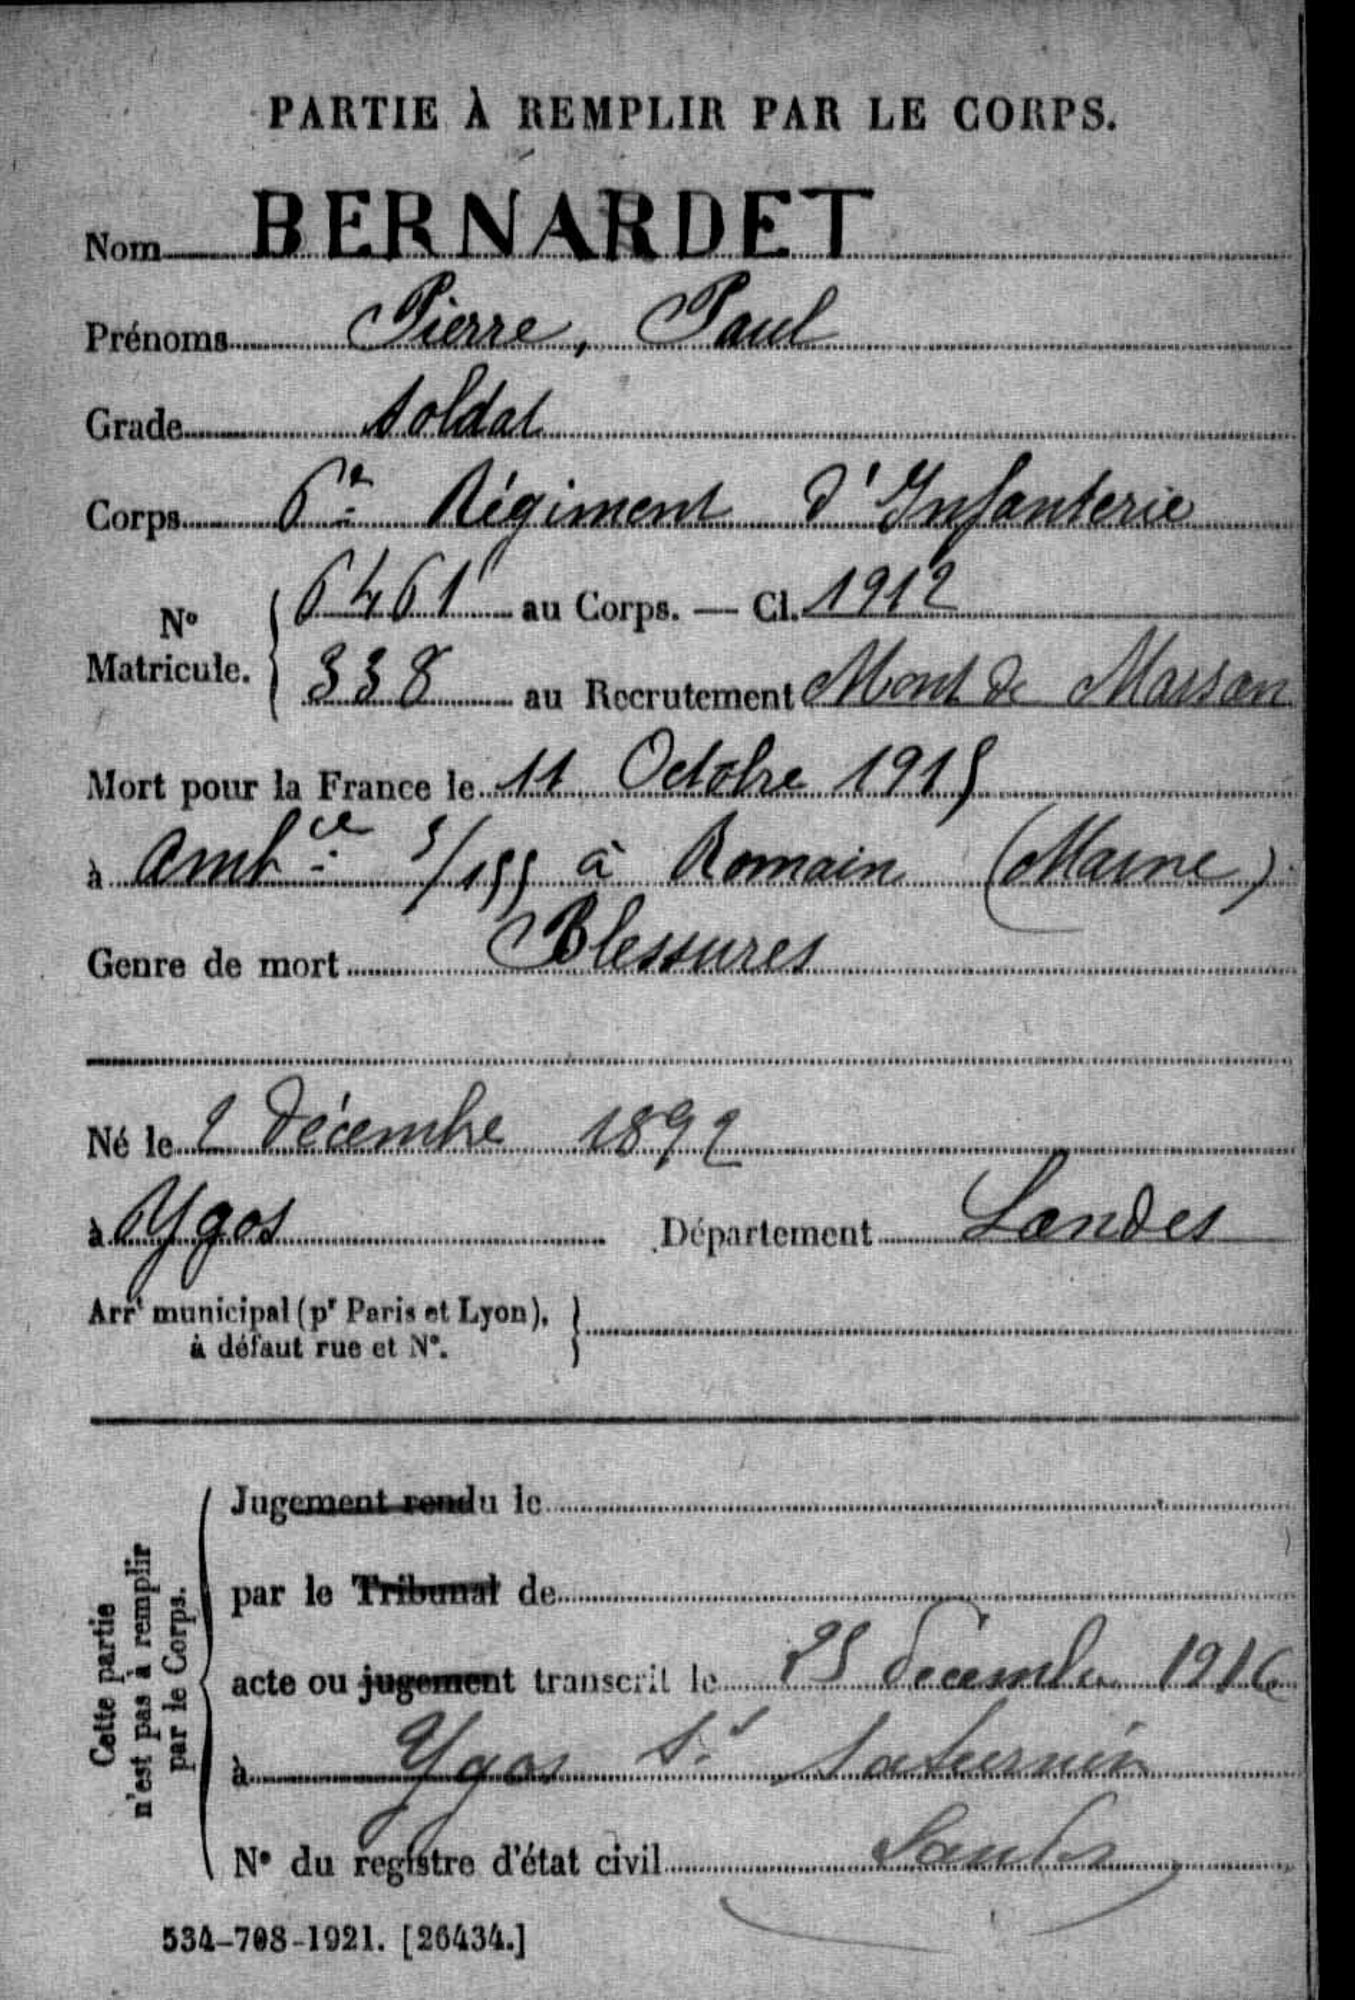 PARTIE À REMPLIR PAR LE CORPS.
Nom BERNARDET
Prénoms Pierre, Paul
Grade soldat
Corps 6e Régiment d'Infanterie
N° Matricule. { 6461 au Corps. — Cl. 1912
338 au Recrutement Mont de Marsan
Mort pour la France le 11 Octobre 1915
à Ambce 5/155 à Romain (Marne)
Genre de mort Blessures
Né le 2 Décembre 1892
à Ygos Département Landes
Arrt municipal (pr Paris et Lyon), }
à défaut rue et N°.
Cette partie
n'est pas à remplir
par le Corps.
Jugement rendu le
par le Tribunal de
acte ou jugement transcrit le 25 décembre 1916
à Ygos St Saturnin
N° du registre d'état civil Landes
534-708-1921. [26434.]